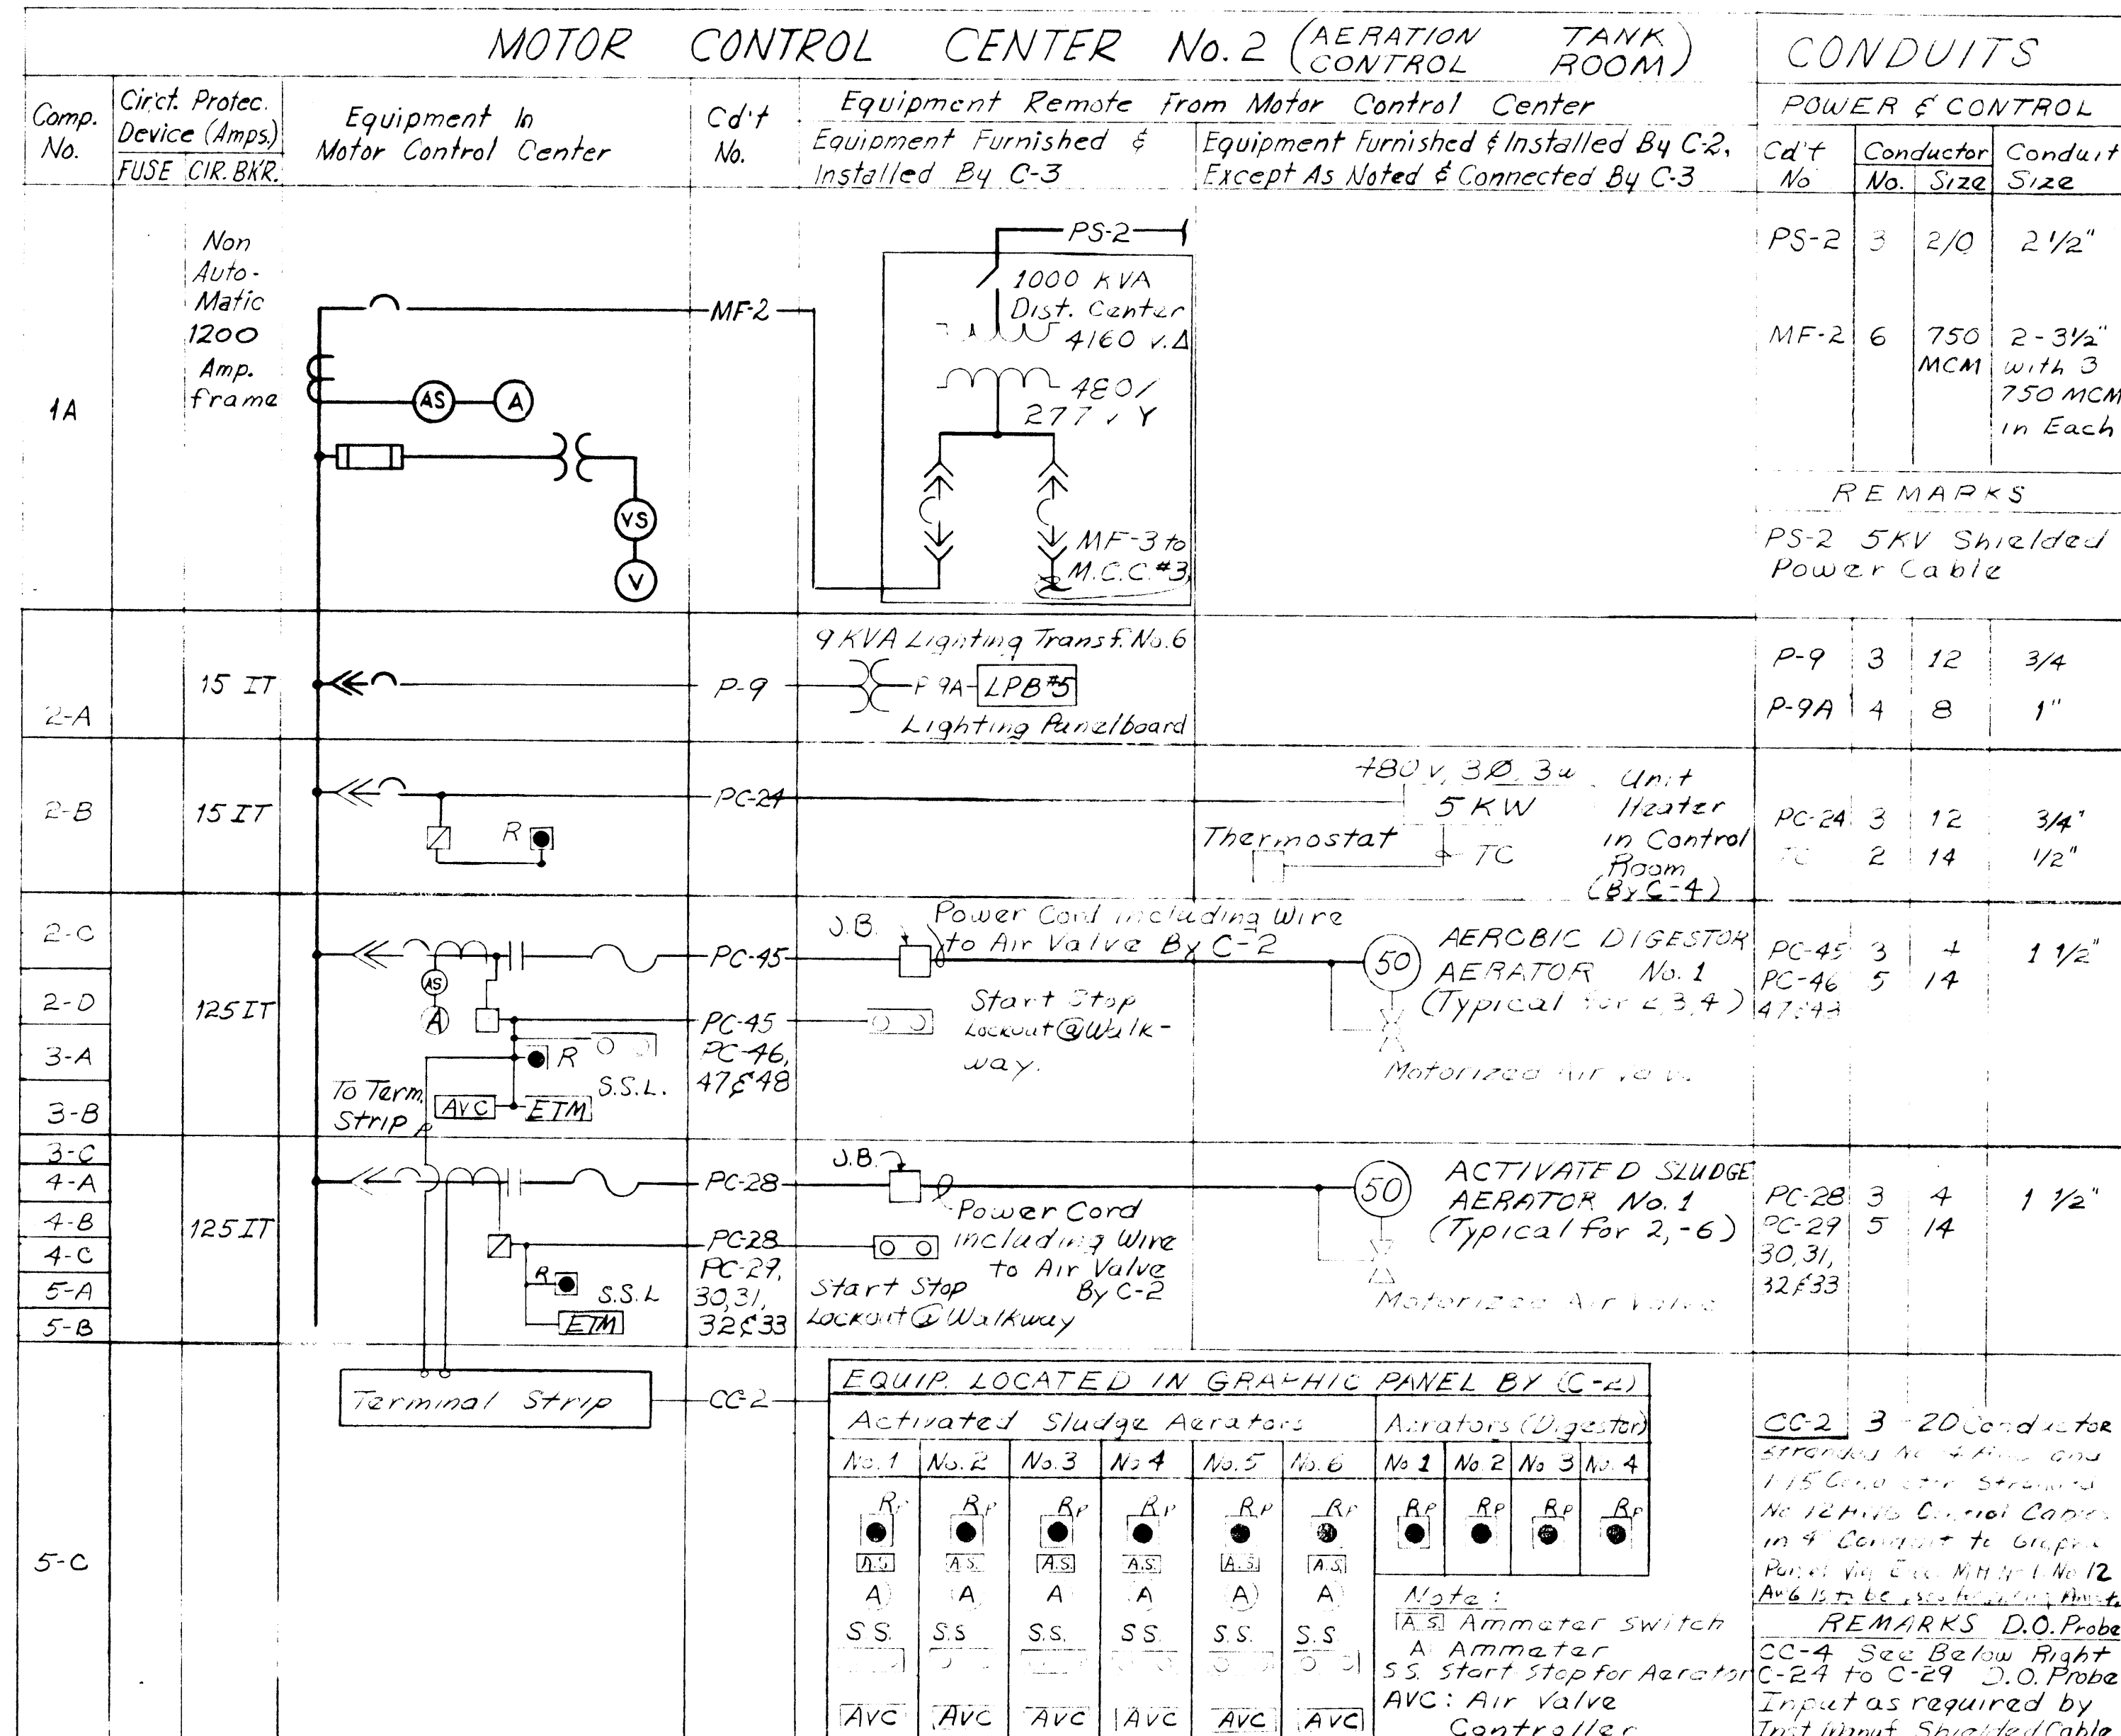 MOTOR CONTROL CENTER No. 2 (AERATION TANK CONTROL ROOM)
CONDUITS
Comp. No.
Cir'ct. Protec. Device (Amps.)
FUSE CIR. BKR.
Equipment In Motor Control Center
Cd't No.
Equipment Remote From Motor Control Center
Equipment Furnished & Installed By C-3
Equipment Furnished & Installed By C-2, Except As Noted & Connected By C-3
POWER & CONTROL
Cd't No
Conductor
No. Size
Conduit Size
1A
Non
Auto-
Matic
1200
Amp.
frame
AS
A
VS
V
MF-2
PS-2
1000 KVA
Dist. Center
4160 v. Δ
480/
277 v Y
MF-3 to
M.C.C. #3
PS-2 3 2/0 2 1/2"
MF-2 6 750 MCM 2 - 3 1/2"
with 3
750 MCM
in Each
REMARKS
PS-2 5KV Shielded
Power Cable
2-A
15 IT
P-9
9 KVA Lighting Transf. No. 6
P 9A
LPB #5
Lighting Panelboard
P-9 3 12 3/4
P-9A 4 8 1"
2-B
15 IT
R
PC-24
480 v, 3Ø, 3w
5 KW
Unit
Heater
in Control
Room
(By C-4)
Thermostat
TC
PC-24 3 12 3/4"
TC 2 14 1/2"
2-C
2-D
3-A
3-B
125 IT
AS
A
R
S.S.L.
AVC
ETM
To Term.
Strip
PC-45
PC-45
PC-46,
47 & 48
J.B.
Power Cord including Wire
to Air Valve By C-2
Start Stop
Lockout @ Walk-
way.
50
AEROBIC DIGESTOR
AERATOR No. 1
(Typical for 2, 3, 4)
Motorized Air Valve
PC-45 3 4 1 1/2"
PC-46 5 14
47 & 48
3-C
4-A
4-B
4-C
5-A
5-B
125 IT
R
S.S.L
ETM
PC-28
PC-28
PC-29,
30, 31,
32 & 33
J.B.
Power Cord
including Wire
to Air Valve
By C-2
Start Stop
Lockout @ Walkway
50
ACTIVATED SLUDGE
AERATOR No. 1
(Typical for 2, -6)
Motorized Air Valve
PC-28 3 4 1 1/2"
PC-29 5 14
30, 31,
32 & 33
5-C
Terminal Strip
CC-2
EQUIP. LOCATED IN GRAPHIC PANEL BY (C-2)
Activated Sludge Aerators
Aerators (Digestor)
No. 1 No. 2 No. 3 No 4 No. 5 No. 6 No 1 No 2 No 3 No. 4
RP RP RP RP RP RP RP RP RP RP
A.S. A.S. A.S. A.S. A.S. A.S.
A A A A A A
S.S. S.S. S.S. S.S. S.S. S.S.
AVC AVC AVC AVC AVC AVC
Note:
A.S. Ammeter Switch
A Ammeter
S.S. Start Stop for Aerator
AVC: Air Valve
Controller
CC-2 3 - 20 Conductor
Stranded No and
Conductor Stranded
No 12 Control Cables
in 4" Conduit to Graphic
Panel via No 12
REMARKS D.O. Probe
CC-4 See Below Right
C-24 to C-29 D.O. Probe
Input as required by
Inst Manuf. Shielded Cable